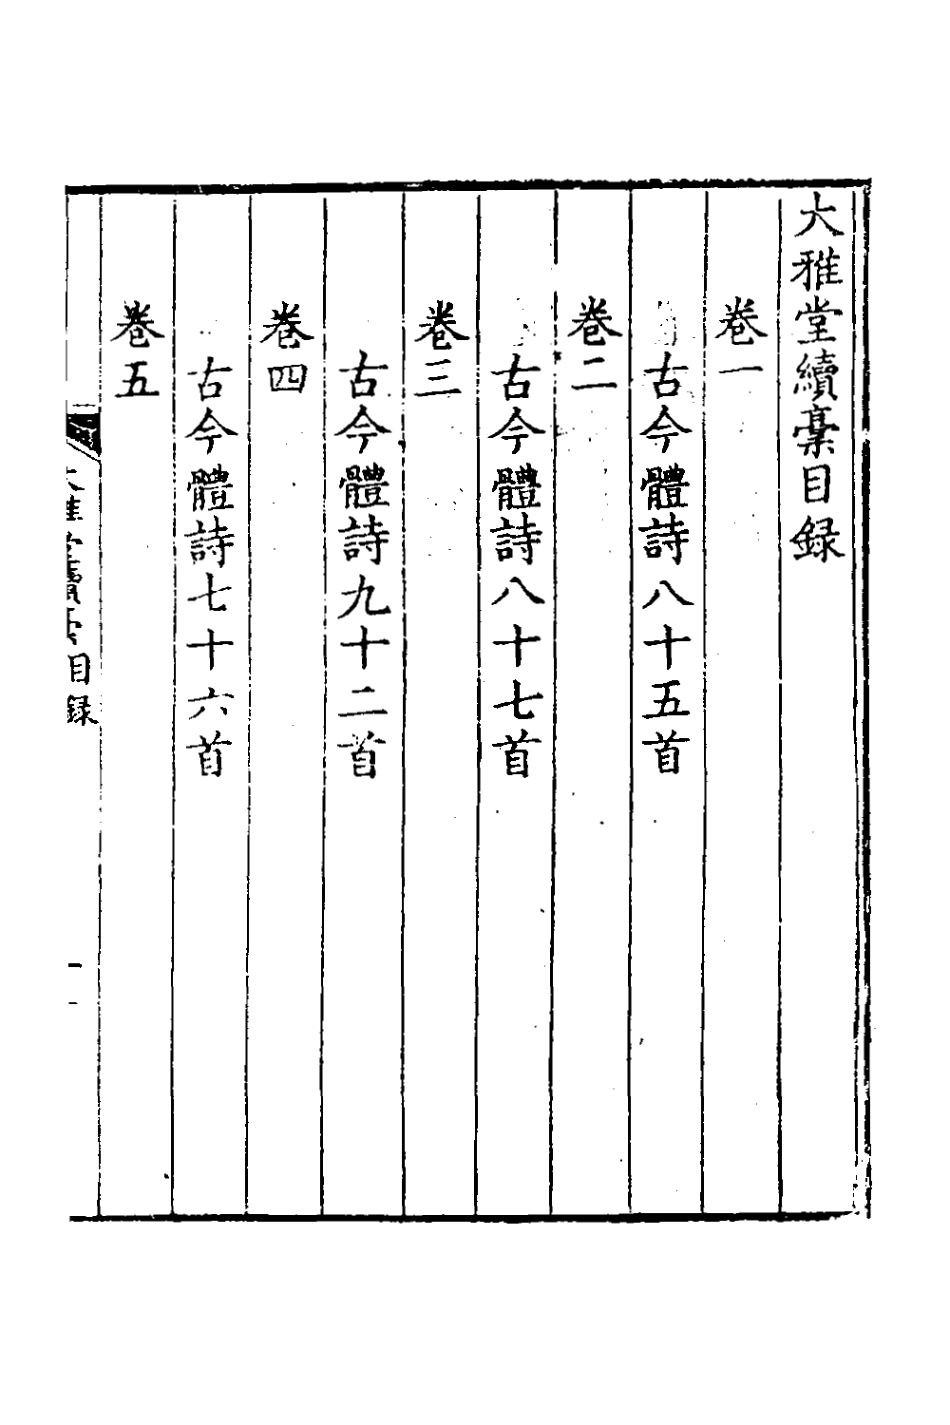 大雅堂續稾目録
卷一
古今體詩八十五首
卷二
古今體詩八十七首
卷三
古今體詩九十二首
卷四
古今體詩七十六首
卷五
大雅堂續稾目録
一